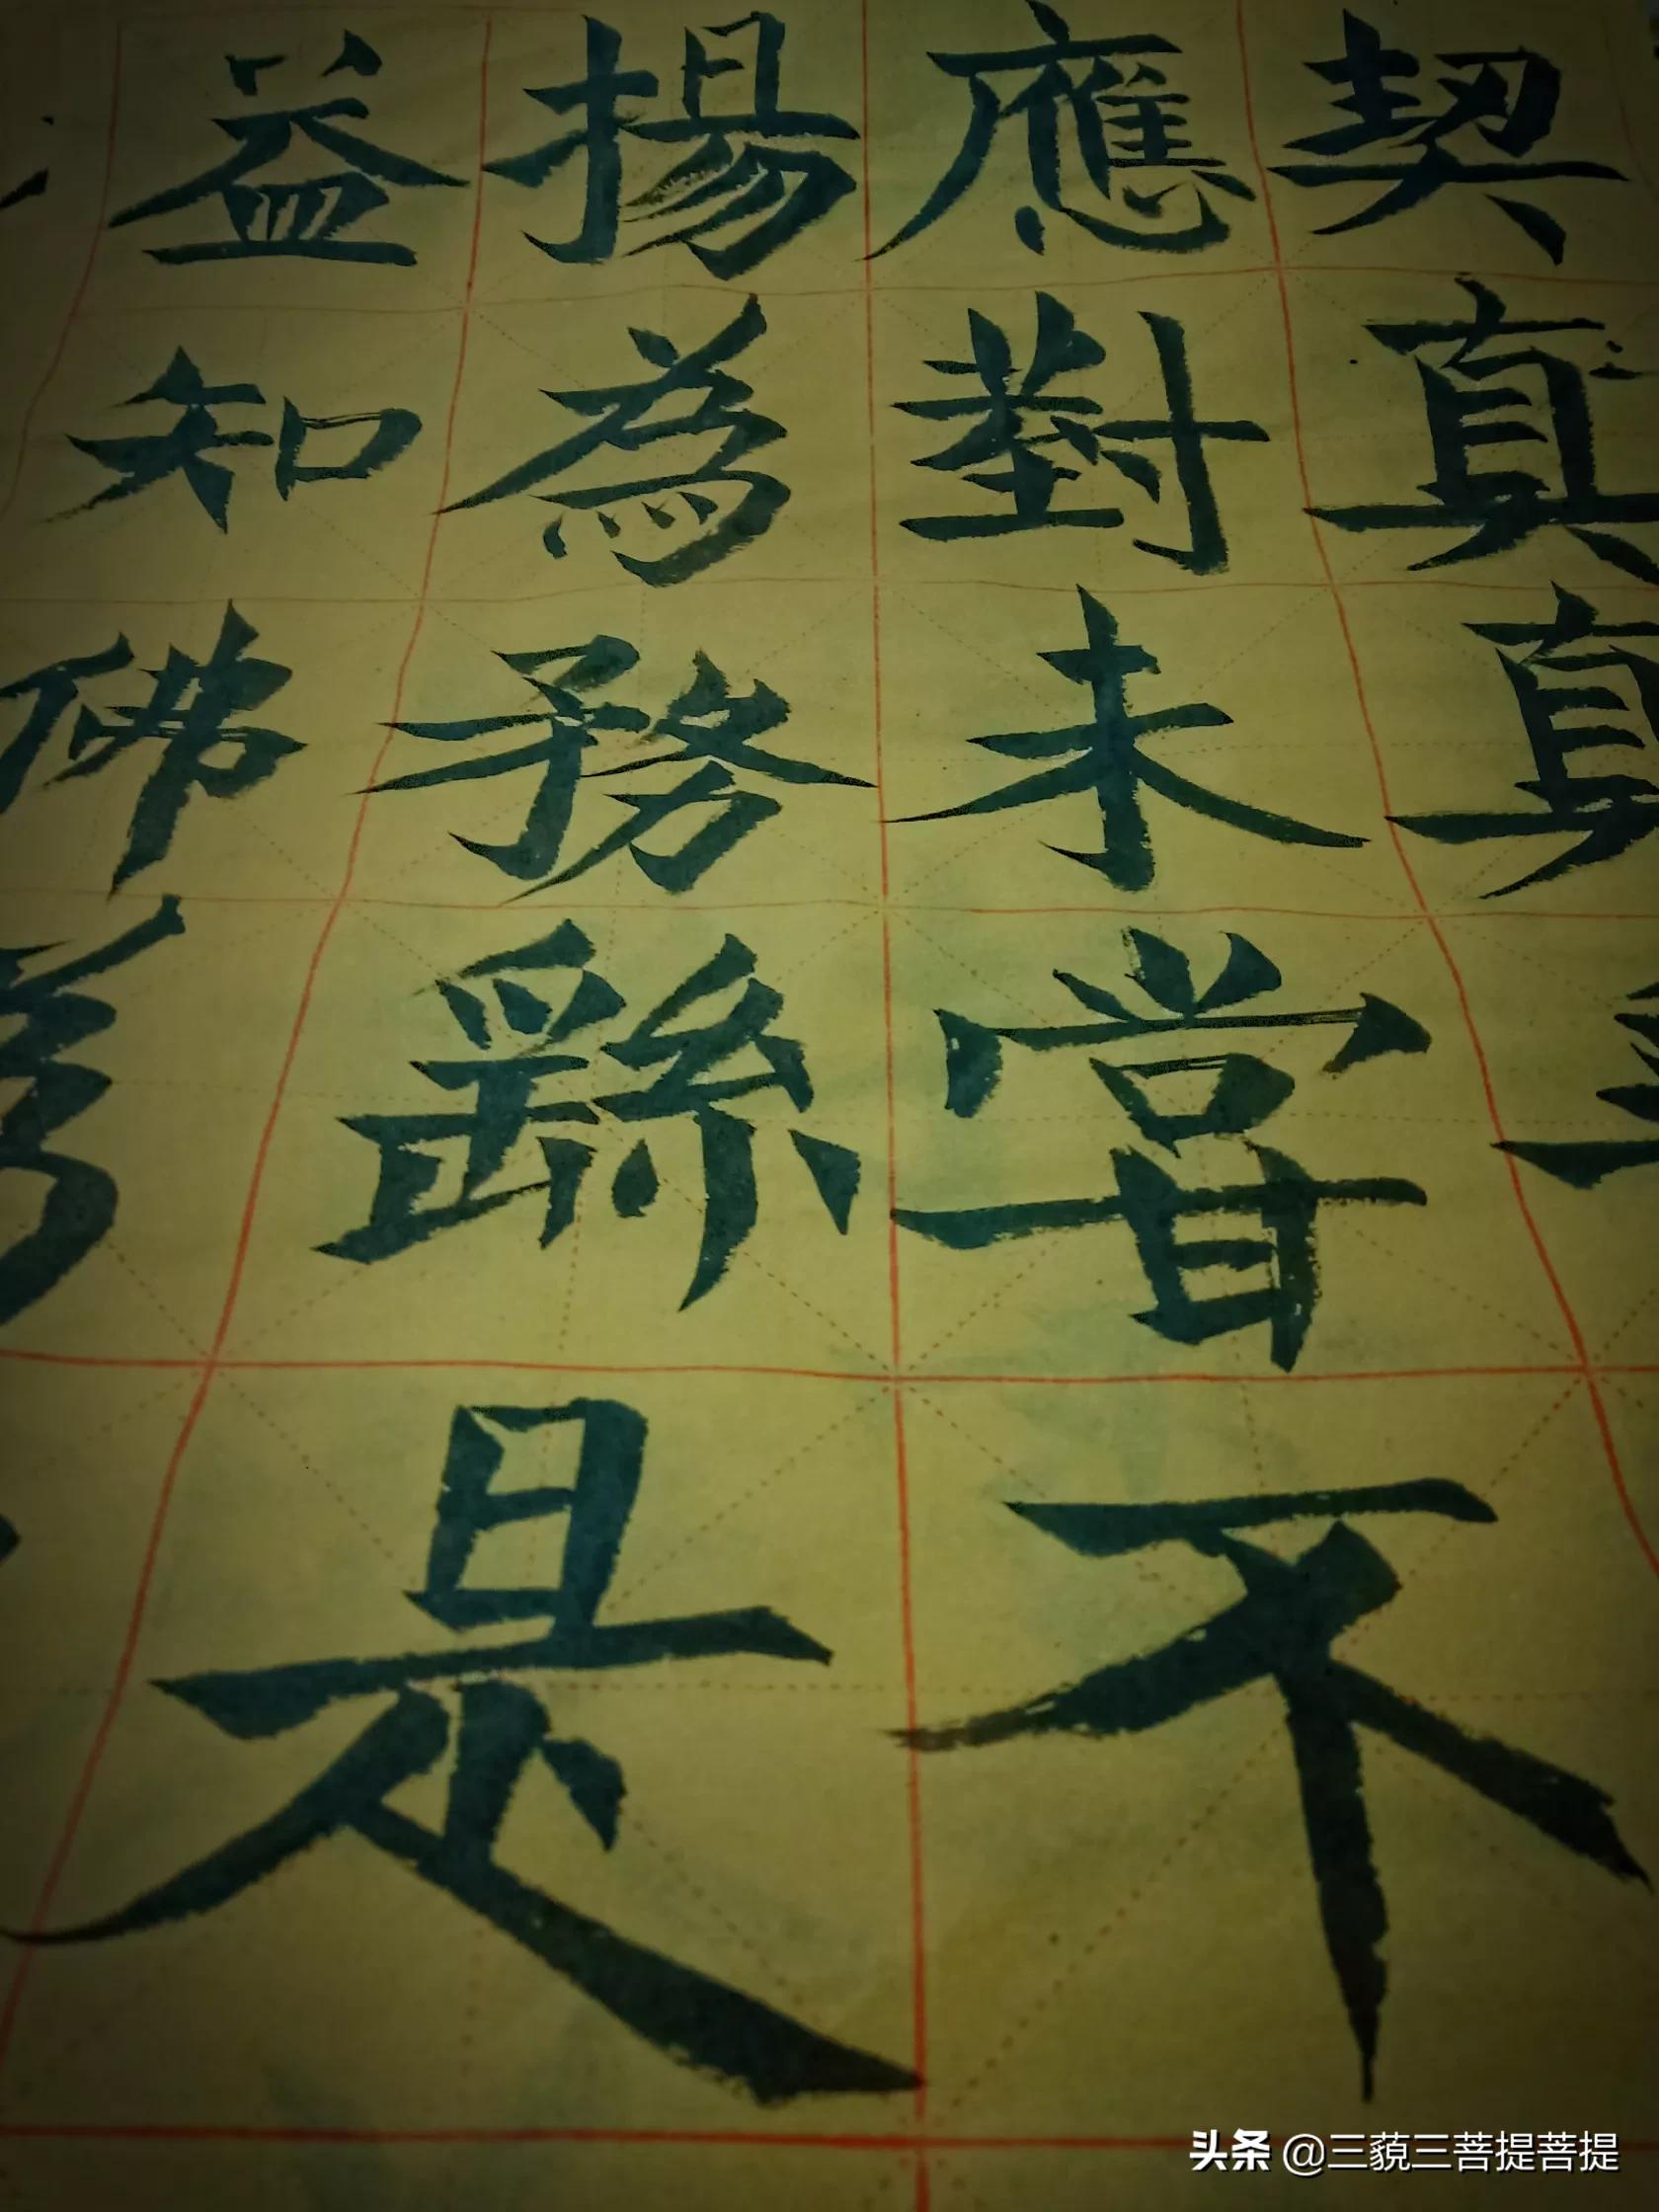 契真真
應對未嘗不
揚為務繇是
益知佛為
头条 @三藐三菩提菩提